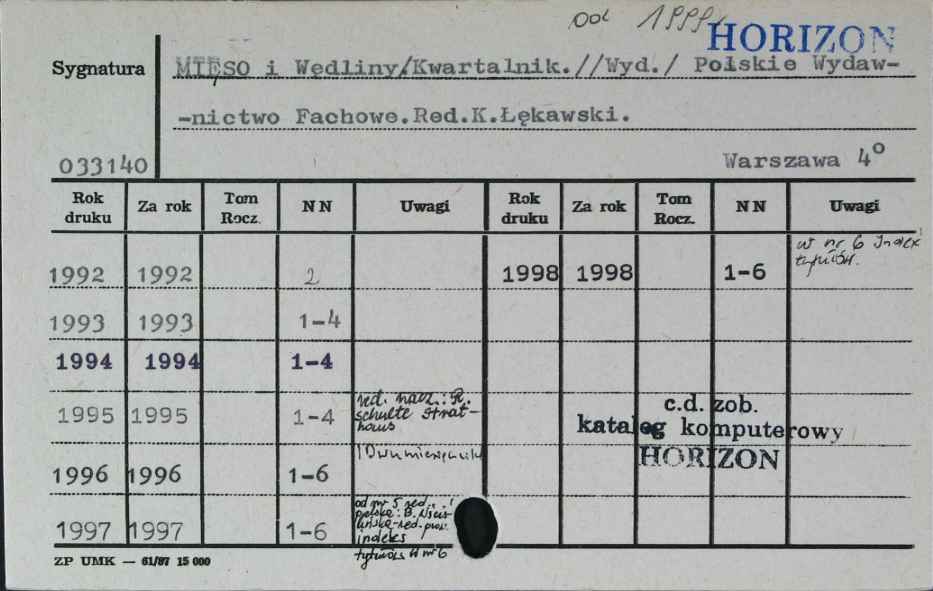 od 1999 HORIZON
Sygnatura MIĘSO i Wędliny/Kwartalnik.//Wyd./ Polskie Wydaw-
-nictwo Fachowe.Red.K.Łękawski.
033140 Warszawa 4º
Rok druku Za rok Tom Rocz. NN Uwagi Rok druku Za rok Tom Rocz. NN Uwagi
1992 1992 2 1998 1998 1-6 w nr 6 Index tytułów.
1993 1993 1-4
1994 1994 1-4
1995 1995 1-4 red. nacz.: R. Schulte Strat-haus
c.d. zob.
katalog komputerowy
HORIZON
1996 1996 1-6 Dwumiesięcznik
1997 1997 1-6 od nr 5 red. indeks tytułów w nr 6
ZP UMK — 61/87 15 000